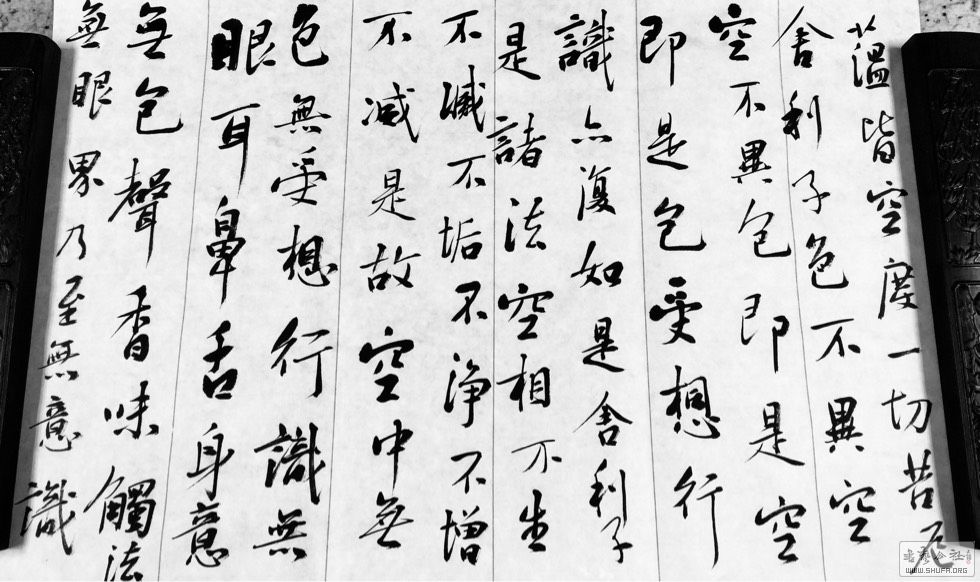 蕰皆空度一切苦厄
舍利子色不異空
空不異色即是空
即是色受想行
識亦復如是舍利子
是諸法空相不生
不滅不垢不淨不增
不減是故空中無
色無受想行識無
眼耳鼻舌身意
無色聲香味觸法
無眼界乃至無意識
WWW.SHUFA.ORG